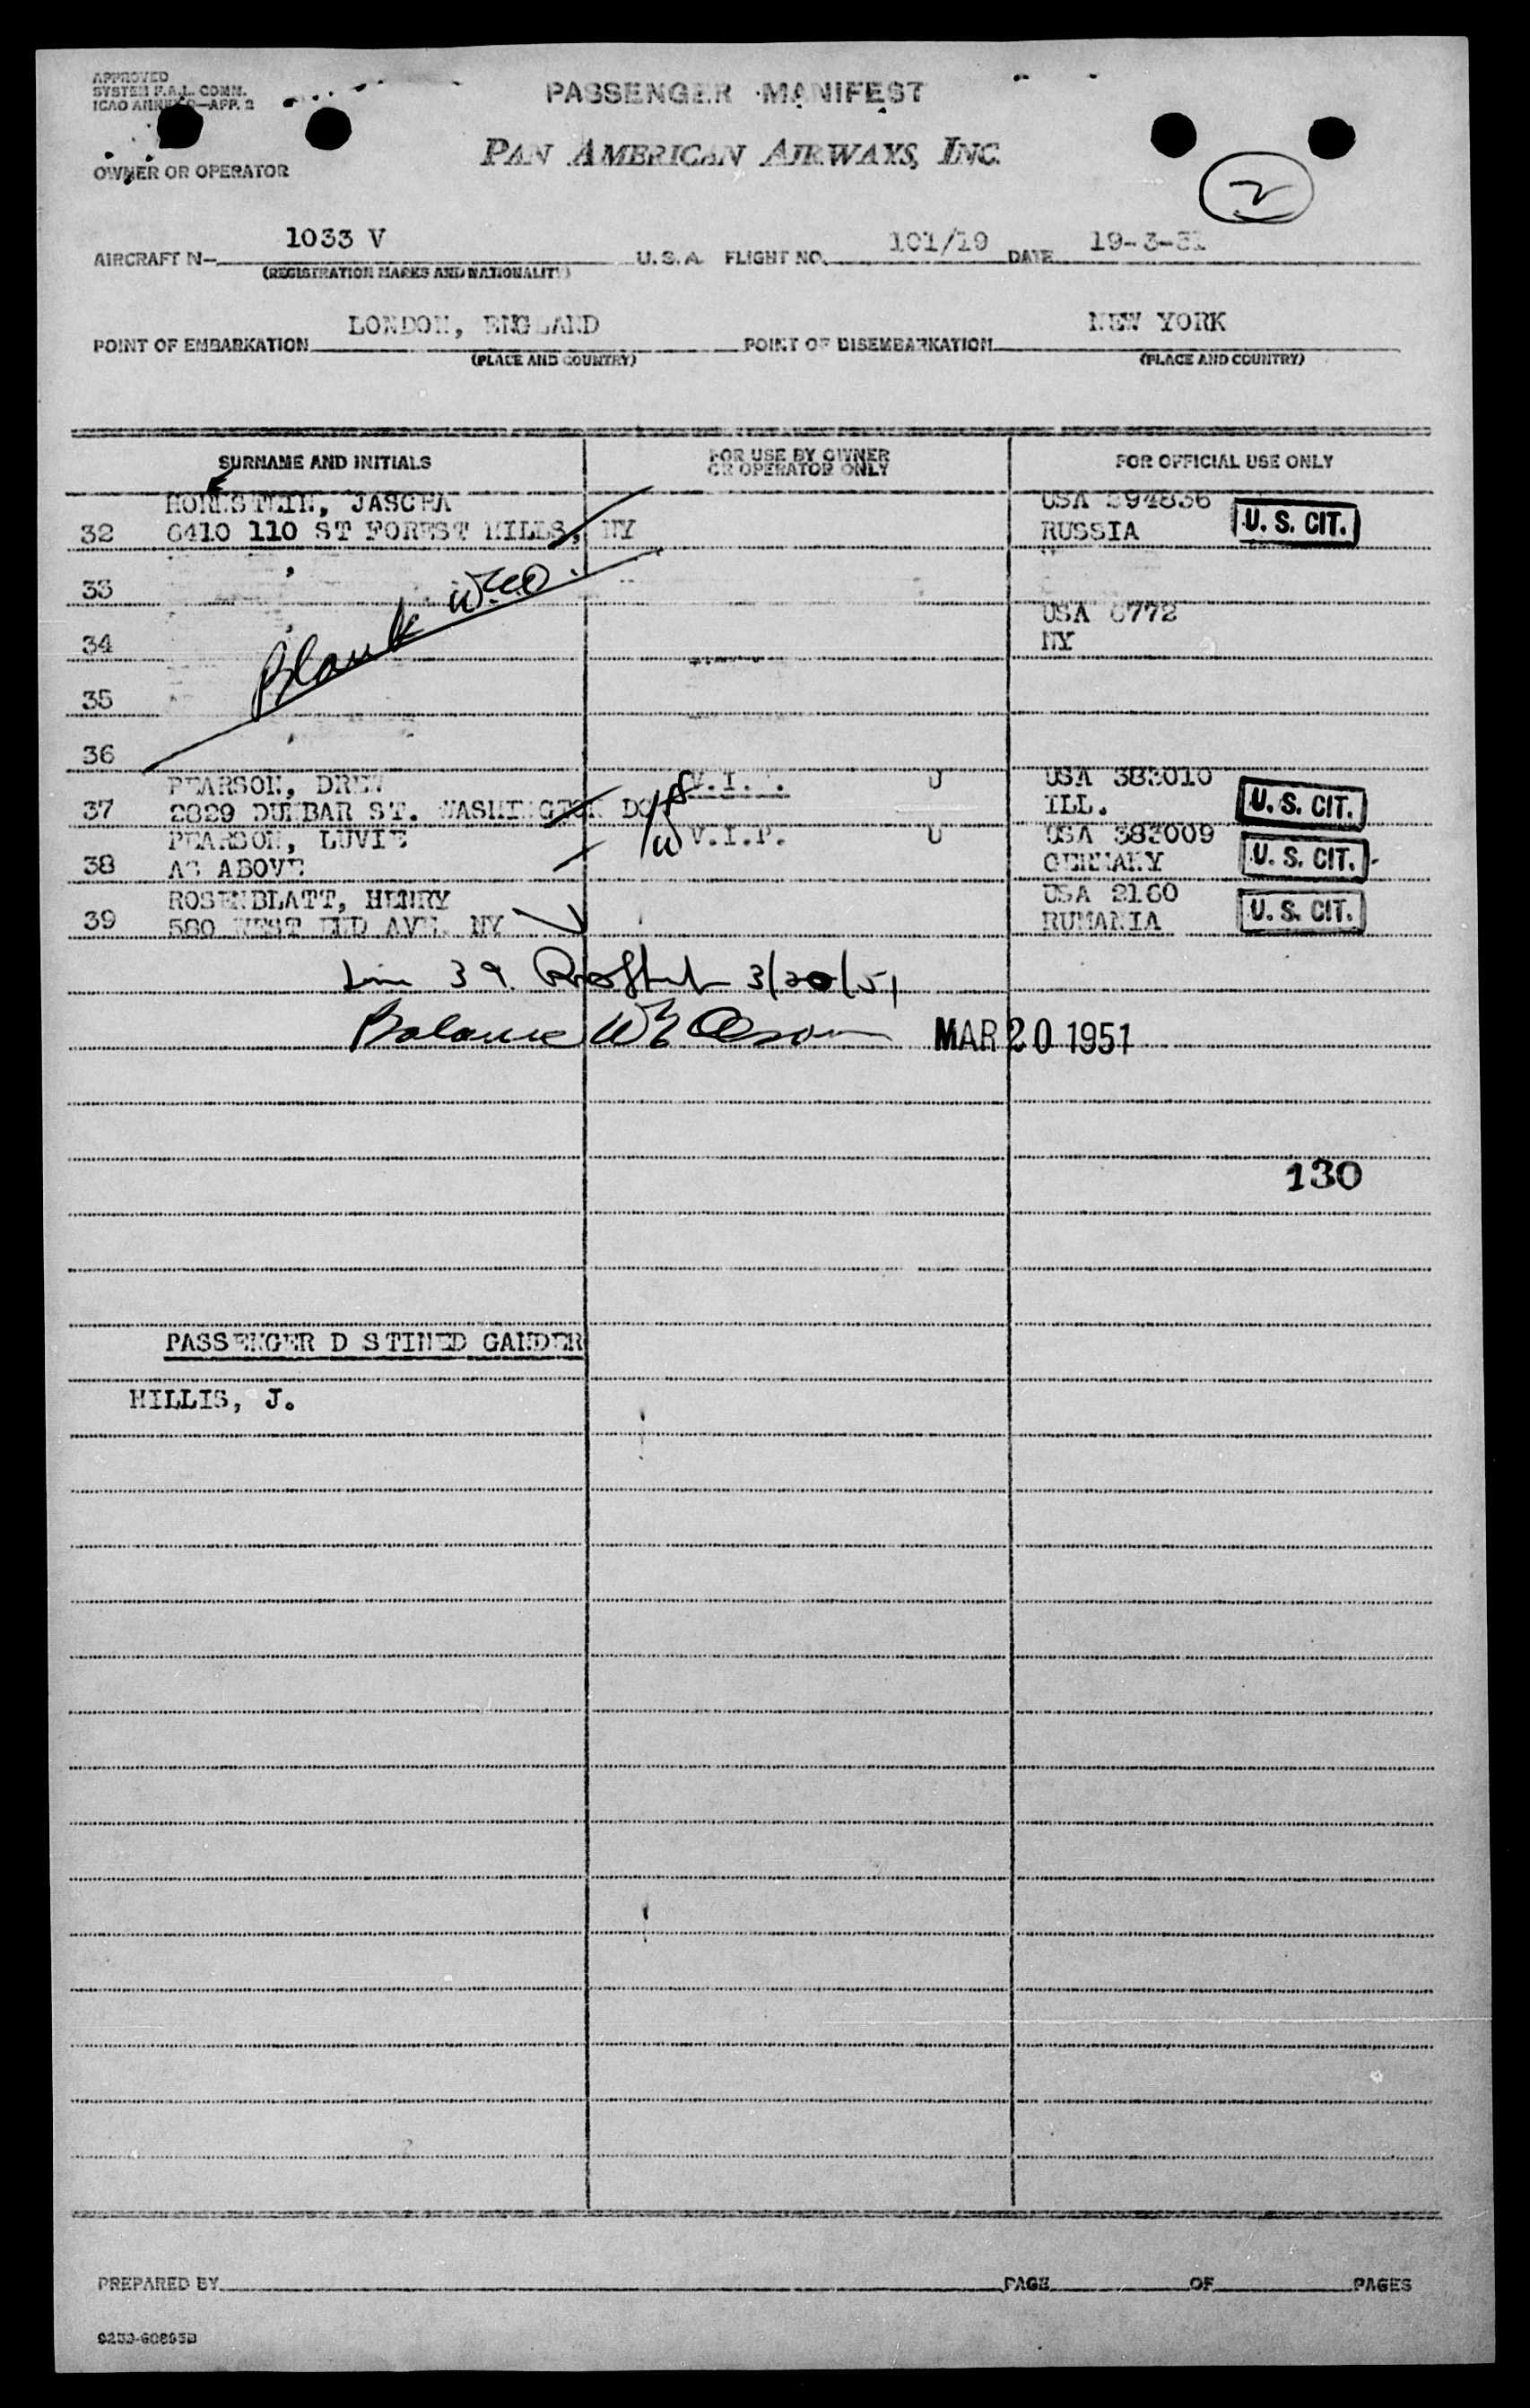 APPROVED
SYSTEM F.A.L. COMM.
ICAO ANNEX 9—APP. 2
PASSENGER MANIFEST
PAN AMERICAN AIRWAYS, INC.
OWNER OR OPERATOR
2
AIRCRAFT N- 1033 V U.S.A. FLIGHT NO. 101/19 DATE 19-3-51
(REGISTRATION MARKS AND NATIONALITY)
POINT OF EMBARKATION LONDON, ENGLAND POINT OF DISEMBARKATION NEW YORK
(PLACE AND COUNTRY) (PLACE AND COUNTRY)
SURNAME AND INITIALS FOR USE BY OWNER OR OPERATOR ONLY FOR OFFICIAL USE ONLY
HORNSTEIN, JASCHA USA 394836
32 6410 110 ST FOREST HILLS, NY RUSSIA U. S. CIT.
33 Blank WEO
USA 6772
34 NY
35
36
PEARSON, DREW V.I.P. U USA 383010
37 2829 DUMBAR ST. WASHINGTON DC ILL. U. S. CIT.
PEARSON, LUVIE V.I.P. U USA 383009
38 AS ABOVE GERMANY U. S. CIT.
ROSENBLATT, HENRY USA 2160
39 580 WEST END AVE. NY RUMANIA U. S. CIT.
Line 39 3/20/51
Balance MAR 20 1951
130
PASSENGER D STINED GANDER
HILLIS, J.
PREPARED BY PAGE OF PAGES